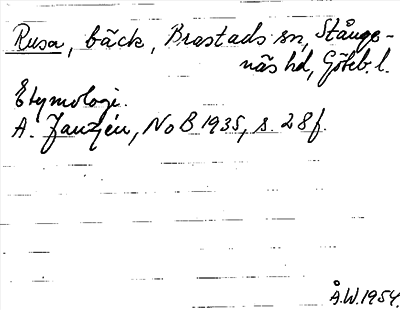 Rusa, bäck, Brastads sn, Stånge-
näs hd, Göteb. l.
Etymologi.
A. Janzén, NoB 1935, s. 28f.
Å.W. 1954.